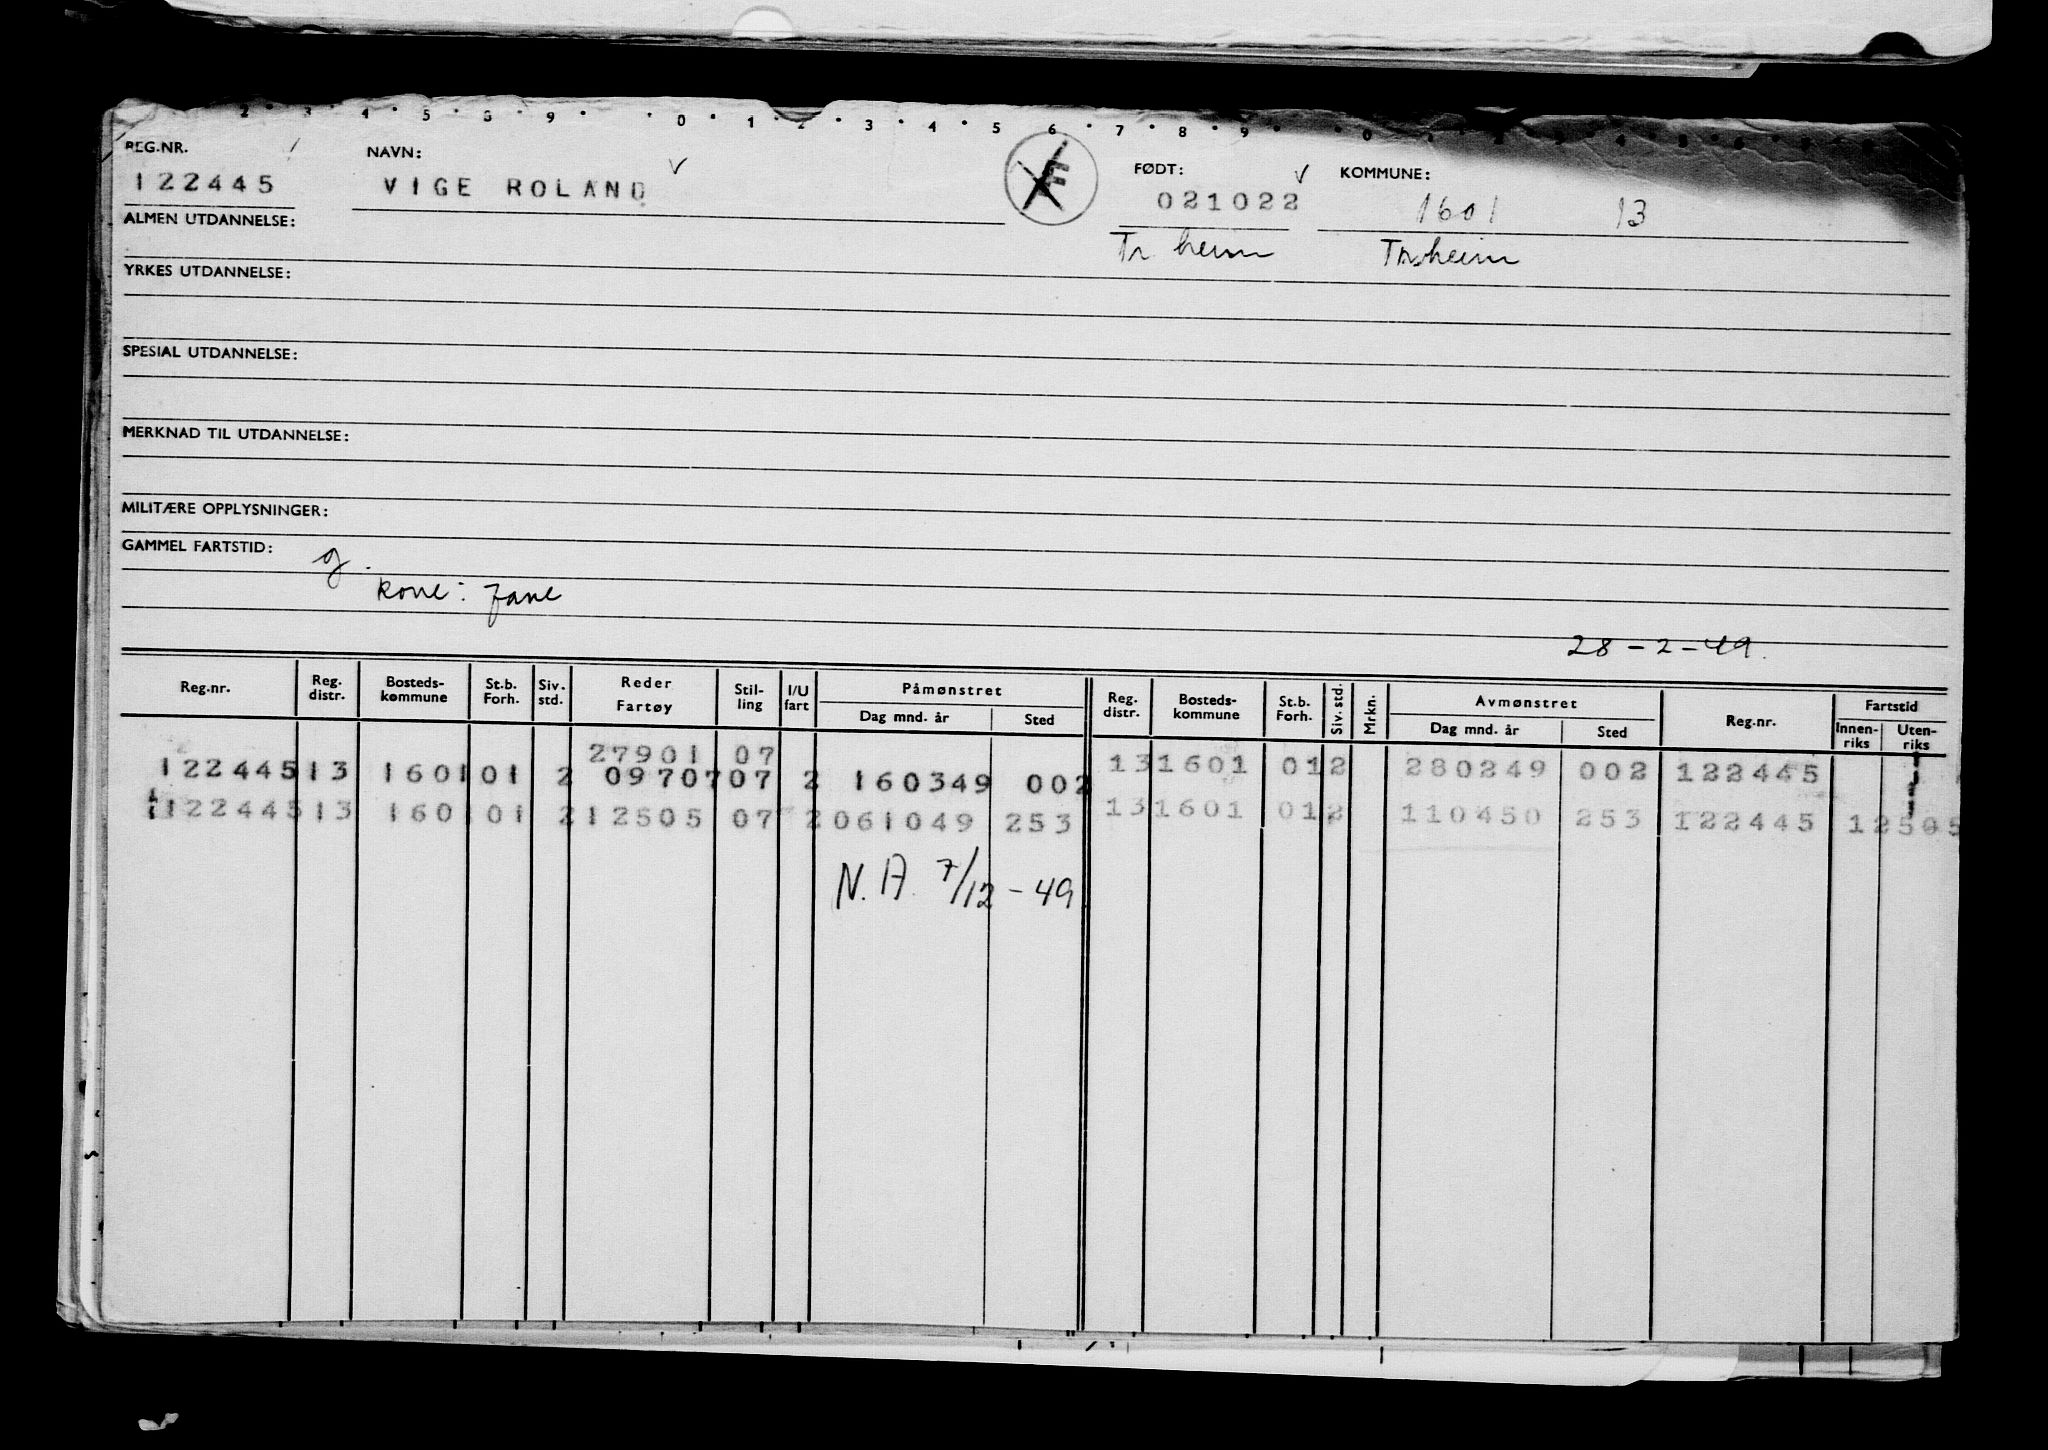 2 · 3 · 4 · 5 · 6 · 8 · 9 · · 0 · 1 · 2 · 3 · 4 · 5 6 · 7 · 8 · 9 · 0
REG.NR. NAVN: FØDT: KOMMUNE:
122445 VIGE ROLAND 021022 1601 13
ALMEN UTDANNELSE: Tr heim Trheim
YRKES UTDANNELSE:
SPESIAL UTDANNELSE:
MERKNAD TIL UTDANNELSE:
MILITÆRE OPPLYSNINGER:
GAMMEL FARTSTID: g.
kone: Jane
28-2-49.
Reg.nr. Reg. distr. Bosteds- kommune St.b. Forh. Siv. std. Reder Fartøy Stil- ling I/U fart Påmønstret Dag mnd. år Sted Reg. distr. Bosteds- kommune St.b. Forh. Siv. std. Mrkn. Avmønstret Dag mnd. år Sted Reg.nr. Fartstid Innen- riks Uten- riks
27901 07
122445 13 1601 01 2 09707 07 2 160349 002 13 1601 01 2 280249 002 122445
122445 13 1601 01 2 12505 07 2 061049 253 13 1601 01 2 110450 253 122445 12505
N.A. 7/12-49